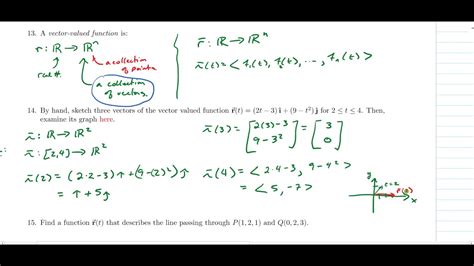 13. A vector-valued function is:
r: ℝ → ℝⁿ
real #.
a collection of points.
a collection of vectors.
r⃗: ℝ → ℝⁿ
r⃗(t) = < f₁(t), f₂(t), ⋯, fₙ(t) >
14. By hand, sketch three vectors of the vector valued function r⃗(t) = (2t − 3) i + (9 − t²) j for 2 ≤ t ≤ 4. Then, examine its graph here.
r⃗: ℝ → ℝ²
r⃗: [2,4] → ℝ²
r⃗(2) = (2·2−3)↑ + (9−(2)²)↑
= ↑ + 5↑
r⃗(3) = [2(3)−3 9−3²] = [3 0]
r⃗(4) = < 2·4−3, 9−4² >
= < 5, −7 >
y
t=2
x
15. Find a function r⃗(t) that describes the line passing through P(1, 2, 1) and Q(0, 2, 3).